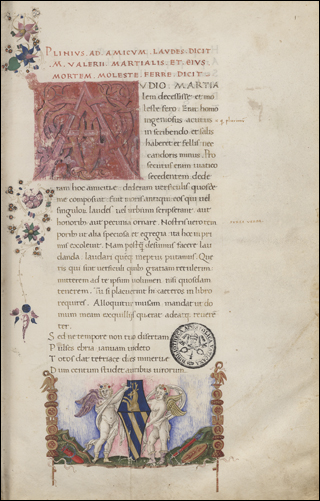 PLINIUS AD AMICUM LAUDES DICIT
M. VALERII MARTIALIS ET EIUS
MORTEM MOLESTE FERRE DICIT
UDIO MARTIA
lem decessisse et mo
leste fero. Erat homo
ingeniosus acutus
in scribendo et salis
haberet et fellis nec
candoris minus. Pro
secutus eram uiatico
secedentem dede
ram hoc amicitie dederam uersiculis quos de
me composuit. Fuit moris antiqui eos qui uel
singulorum laudes uel urbium scripserant aut
honoribus aut pecunia ornare. Nostris uero tem
poribus ut alia speciosa et egregia ita hoc in pri
mis exoleuit. Nam postquam desiimus facere lau
danda laudari quoque ineptum putamus. Que
ris qui sint uersiculi quibus gratiam retulerim
mitterem ad te ipsum uolumen nisi quosdam
tenerem. Tu si placuerint hi caeteros in libro
requires. Alloquitur musam mandat ut do
mum meam exquiliis querat adeatque reueren
ter.
Sed ne tempore non tuo disertam
Pulses ebria ianuam uideto
Totos dat tetricae dies minerue
Dum centum studet auribus uirorum.